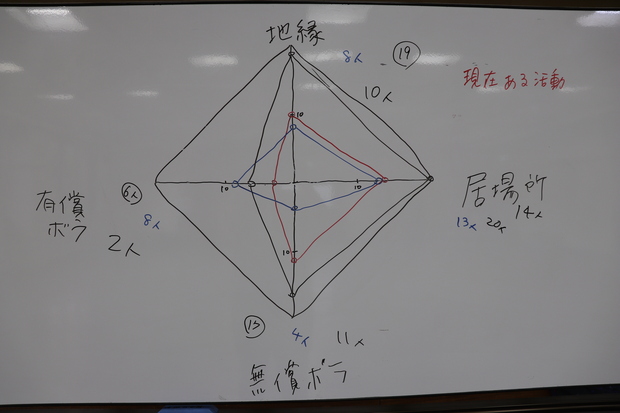 地縁
8人
19
10人
現在ある活動
10
有償
ボラ
6人
8人
2人
10
10
居場所
13人 20人 14人
10
4人 11人
無償ボラ